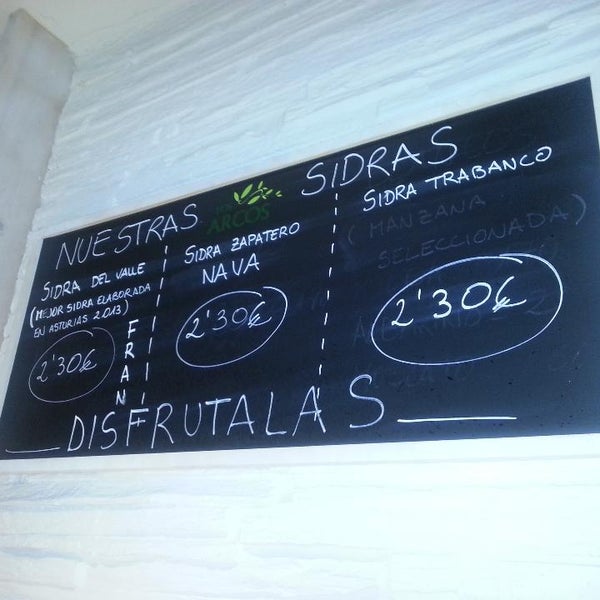 NUESTRAS SIDRAS
ARCOS
SIDRA DEL VALLE
(MEJOR SIDRA ELABORADA
EN ASTURIAS 2013)
2'30€
FRAN
SIDRA ZAPATERO
NAVA
2'30€
SIDRA TRABANCO
(MANZANA
SELECCIONADA)
2'30€
DISFRUTALAS